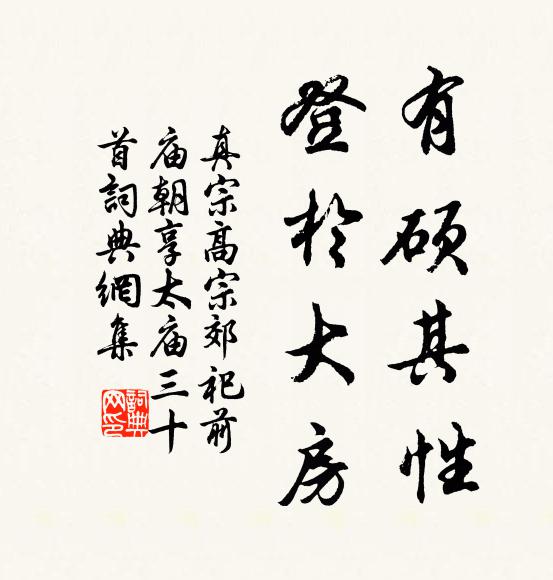 有硕其性
登於大房
真宗高宗郊祀前
庙朝享太庙三十
首詞典網集
詞典
网印